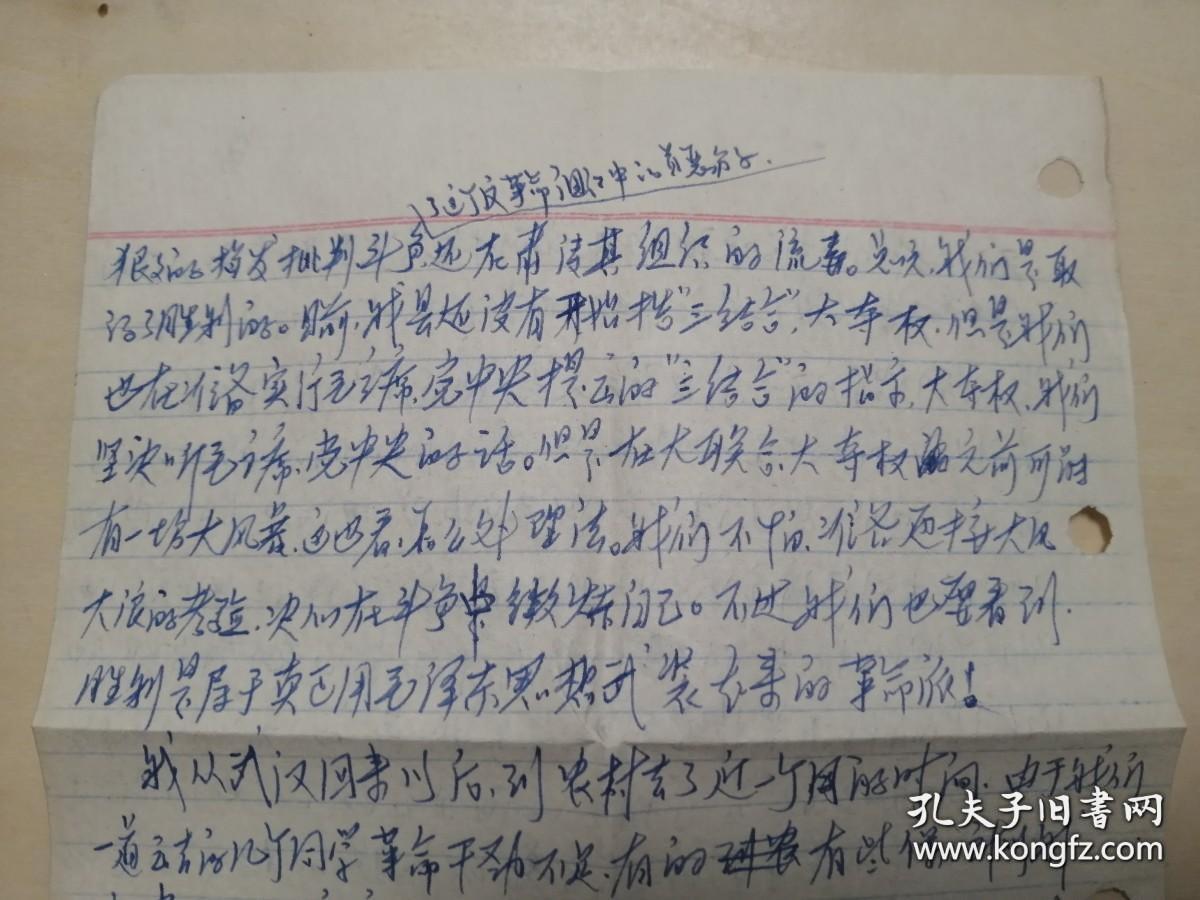 了这个反革命组织中的首恶分子.
狠狠的揭发批判斗争,还在肃清其组织的流毒。总之,我们是取
得了胜利的。目前,我县还没有开始搞"三结合",大夺权,但是我们
也在准备实行毛主席,党中央提出的"三结合"的指示,大夺权,我们
坚决听毛主席,党中央的话。但是,在大联合,大夺权之前可能
有一场大风暴,这也看怎么处理法。我们不怕,准备迎接大风
大浪的考验,决心在斗争中锻炼自己。不过我们也要看到,
胜利是属于真正用毛泽东思想武装起来的革命派!
我从武汉回来以后,到农村去了近一个月的时间,由于我们
一道去的几个同学革命干劲不足,有的 有些
孔夫子旧书网
www.kongfz.com